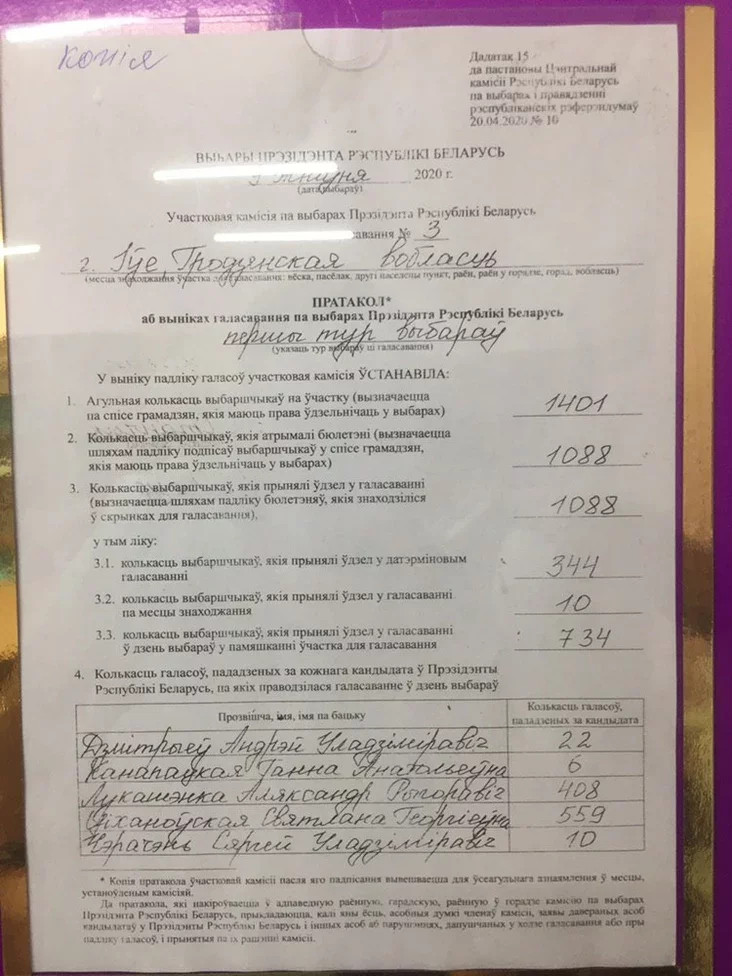 копія
Дадатак 15
да пастановы Цэнтральнай
камісіі Рэспублікі Беларусь
па выбарах і правядзенні
рэспубліканскіх рэферэндумаў
20.04.2020 № 16
ВЫБАРЫ ПРЭЗІДЭНТА РЭСПУБЛІКІ БЕЛАРУСЬ
9 жніўня 2020 г.
(дата выбараў)
Участковая камісія па выбарах Прэзідэнта Рэспублікі Беларусь
№ 3
г. Іўе, Гродзенская вобласць
(месца знаходжання ўчастка для галасавання: вёска, пасёлак, другі населены пункт, раён, раён у горадзе, горад, вобласць)
ПРАТАКОЛ*
аб выніках галасавання па выбарах Прэзідэнта Рэспублікі Беларусь
першы тур выбараў
(указаць тур выбараў ці галасавання)
У выніку падліку галасоў участковая камісія ЎСТАНАВІЛА:
1. Агульная колькасць выбаршчыкаў на ўчастку (вызначаецца
па спісе грамадзян, якія маюць права ўдзельнічаць у выбарах) 1401
2. Колькасць выбаршчыкаў, якія атрымалі бюлетэні (вызначаецца
шляхам падліку подпісаў выбаршчыкаў у спісе грамадзян,
якія маюць права ўдзельнічаць у выбарах) 1088
3. Колькасць выбаршчыкаў, якія прынялі ўдзел у галасаванні
(вызначаецца шляхам падліку бюлетэняў, якія знаходзіліся
ў скрынках для галасавання), 1088
у тым ліку:
3.1. колькасць выбаршчыкаў, якія прынялі ўдзел у датэрміновым
галасаванні 344
3.2. колькасць выбаршчыкаў, якія прынялі ўдзел у галасаванні
па месцы знаходжання 10
3.3. колькасць выбаршчыкаў, якія прынялі ўдзел у галасаванні
ў дзень выбараў у памяшканні ўчастка для галасавання 734
4. Колькасць галасоў, пададзеных за кожнага кандыдата ў Прэзідэнты
Рэспублікі Беларусь, па якіх праводзілася галасаванне ў дзень выбараў
Прозвішча, імя, імя па бацьку Колькасць галасоў,
пададзеных за кандыдата
Дзмітрыеў Андрэй Уладзіміравіч 22
Канапацкая Ганна Анатольеўна 6
Лукашэнка Аляксандр Рыгоравіч 408
Ціханоўская Святлана Георгіеўна 559
Чэрачэнь Сяргей Уладзіміравіч 10
* Копія пратакола ўчастковай камісіі пасля яго падпісання вывешваецца для ўсеагульнага азнаямлення ў месцы,
устаноўленым камісіяй.
Да пратакола, які накіроўваецца ў адпаведную раённую, гарадскую, раённую ў горадзе камісію па выбарах
Прэзідэнта Рэспублікі Беларусь, прыкладаюцца, калі яны ёсць, асобныя думкі членаў камісіі, заявы давераных асоб
кандыдатаў у Прэзідэнты Рэспублікі Беларусь і іншых асоб аб парушэннях, дапушчаных у ходзе галасавання або пры
падліку галасоў, і прынятыя па іх рашэнні камісіі.